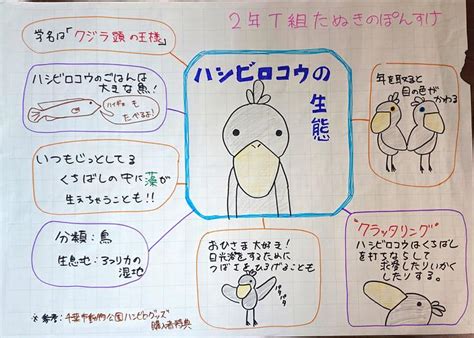 2年T組たぬきのぽんすけ
学名は「クジラ頭の王様」
ハシビロコウの
生態
ハシビロコウのごはんは
大きな魚！
ハイギョも
たべるよ！
年を取ると
目の色が
かわる
いつもじっとしてる
くちばしの中に藻が
生えちゃうことも!!
分類：鳥
生息地：アフリカの
湿地
おひさま大好き！
日光浴をするために
つばさをひろげることも
パタ
パタ
"クラッタリング"
ハシビロコウはくちばし
を打ちならして
求愛したりいかく
したりする。
※参考：千葉市動物公園ハシビログッズ
購入者特典